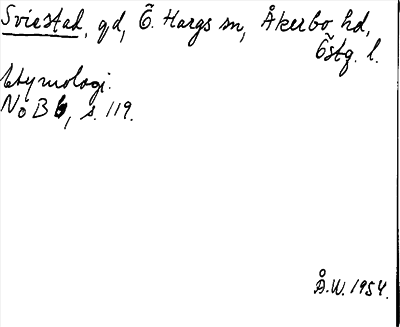 Sviestad, gd, Ö. Hargs sn, Åkerbo hd,
Östg. l.
Etymologi.
NoB 6, s. 119.
Å.W. 1954.